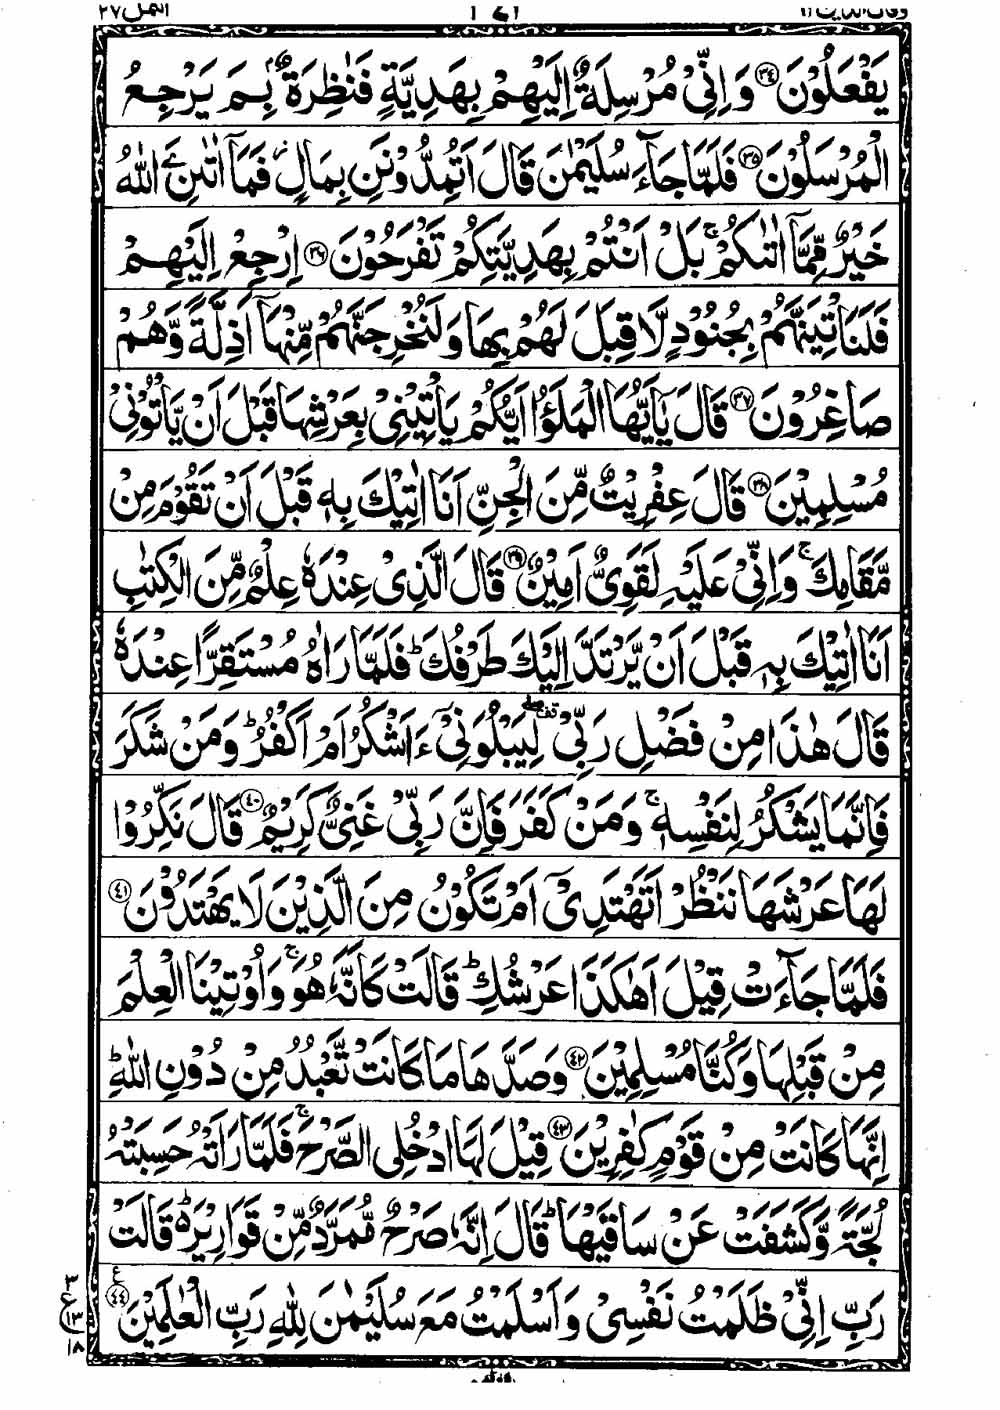 وقال الذين ١٩ النمل ٢٧
يَفْعَلُوْنَ ﴿۳۴﴾ وَ اِنِّیْ مُرْسِلَةٌ اِلَیْهِمْ بِهَدِیَّةٍ فَنٰظِرَةٌۢ بِمَ یَرْجِعُ
الْمُرْسَلُوْنَ ﴿۳۵﴾ فَلَمَّا جَآءَ سُلَیْمٰنَ قَالَ اَتُمِدُّوْنَنِ بِمَالٍ٘ فَمَاۤ اٰتٰىنِۦَ اللّٰهُ
خَیْرٌ مِّمَّاۤ اٰتٰىكُمْ ۚ بَلْ اَنْتُمْ بِهَدِیَّتِكُمْ تَفْرَحُوْنَ ﴿۳۶﴾ اِرْجِعْ اِلَیْهِمْ
فَلَنَاْتِیَنَّهُمْ بِجُنُوْدٍ لَّا قِبَلَ لَهُمْ بِهَا وَ لَنُخْرِجَنَّهُمْ مِّنْهَاۤ اَذِلَّةً وَّ هُمْ
صَاغِرُوْنَ ﴿۳۷﴾ قَالَ یٰۤاَیُّهَا الْمَلَؤُا اَیُّكُمْ یَاْتِیْنِیْ بِعَرْشِهَا قَبْلَ اَنْ یَّاْتُوْنِیْ
مُسْلِمِیْنَ ﴿۳۸﴾ قَالَ عِفْرِیْتٌ مِّنَ الْجِنِّ اَنَا اٰتِیْكَ بِهٖ قَبْلَ اَنْ تَقُوْمَ مِنْ
مَّقَامِكَ ۚ وَ اِنِّیْ عَلَیْهِ لَقَوِیٌّ اَمِیْنٌ ﴿۳۹﴾ قَالَ الَّذِیْ عِنْدَهٗ عِلْمٌ مِّنَ الْكِتٰبِ
اَنَا اٰتِیْكَ بِهٖ قَبْلَ اَنْ یَّرْتَدَّ اِلَیْكَ طَرْفُكَ ؕ فَلَمَّا رَاٰهُ مُسْتَقِرًّا عِنْدَهٗ
قَالَ هٰذَا مِنْ فَضْلِ رَبِّیْ ۫ۖ لِیَبْلُوَنِیْۤ ءَاَشْكُرُ اَمْ اَكْفُرُ ؕ وَ مَنْ شَكَرَ
فَاِنَّمَا یَشْكُرُ لِنَفْسِهٖ ۚ وَ مَنْ كَفَرَ فَاِنَّ رَبِّیْ غَنِیٌّ كَرِیْمٌ ﴿۴۰﴾ قَالَ نَكِّرُوْا
لَهَا عَرْشَهَا نَنْظُرْ اَتَهْتَدِیْۤ اَمْ تَكُوْنُ مِنَ الَّذِیْنَ لَا یَهْتَدُوْنَ ﴿۴۱﴾
فَلَمَّا جَآءَتْ قِیْلَ اَهٰكَذَا عَرْشُكِ ؕ قَالَتْ كَاَنَّهٗ هُوَ ۚ وَ اُوْتِیْنَا الْعِلْمَ
مِنْ قَبْلِهَا وَ كُنَّا مُسْلِمِیْنَ ﴿۴۲﴾ وَ صَدَّهَا مَا كَانَتْ تَّعْبُدُ مِنْ دُوْنِ اللّٰهِ ؕ
اِنَّهَا كَانَتْ مِنْ قَوْمٍ كٰفِرِیْنَ ﴿۴۳﴾ قِیْلَ لَهَا ادْخُلِی الصَّرْحَ ۚ فَلَمَّا رَاَتْهُ حَسِبَتْهُ
لُجَّةً وَّ كَشَفَتْ عَنْ سَاقَیْهَا ؕ قَالَ اِنَّهٗ صَرْحٌ مُّمَرَّدٌ مِّنْ قَوَارِیْرَ ؕ۬ قَالَتْ
رَبِّ اِنِّیْ ظَلَمْتُ نَفْسِیْ وَ اَسْلَمْتُ مَعَ سُلَیْمٰنَ لِلّٰهِ رَبِّ الْعٰلَمِیْنَ ﴿۴۴﴾
۳
ع
۱۳
۱۸